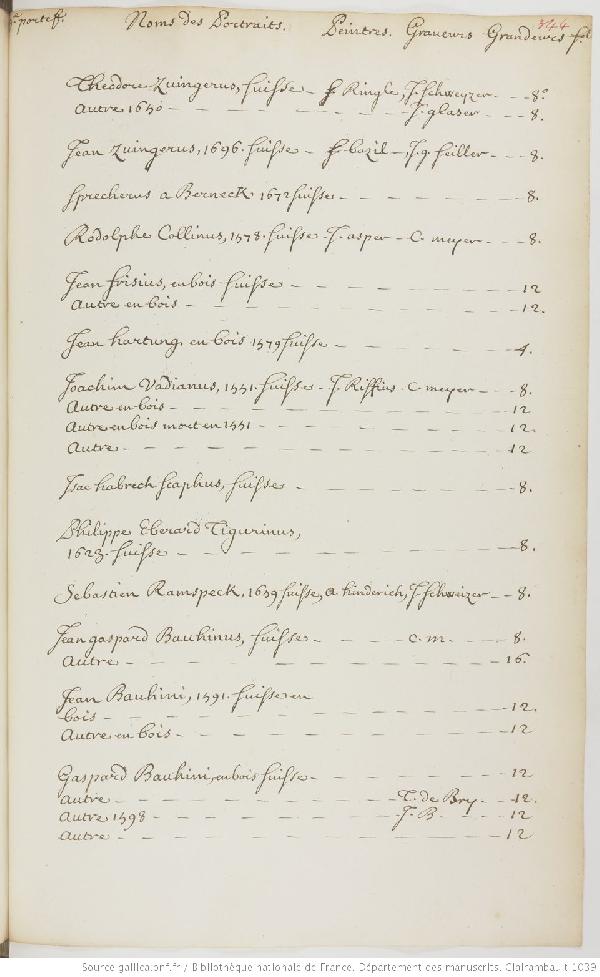 portef. Noms des Portraits. Peintres. Graveurs Grandeurs 344
Theodore Zuingerus, suisse – f Ringle, J. Schweyzer – – 8.°
Autre 1650 – J. glaser – 8.
Jean Zuingerus, 1696. suisse – – J. g. seiller – – 8.
Sprecherus a Berneck 1672 suisse – 8.
Rodolphe Collinus, 1578. suisse J. asper – C. meyer – – 8.
Jean frisius, en bois suisse – 12
Autre en bois – 12.
Jean hartung, en bois 1579 suisse – 4.
Joachim Vadianus, 1551. suisse – J. Riffius – C. meyer – – 8.
Autre en bois – 12
Autre en bois mort en 1551 – 12.
Autre – 12
Isac habrech suisse – 8.
Philippe Eberard Tigurinus,
1623. suisse – 8.
Sebastien Ramspeck, 1659 suisse, a hinderich, J. Schweizer – – 8.
Jean gaspard Bauhinus, suisse – c. m. – 8.
Autre – 16.
Jean Bauhini, 1591. suisse en
bois – 12.
Autre en bois – 12
Gaspard Bauhini, en bois suisse – 12
Autre – T. de Bry – 12.
Autre 1598 – J. B – 12
Autre – 12
Source gallica.bnf.fr / Bibliothèque nationale de France. Département des manuscrits. Clairambault 1039